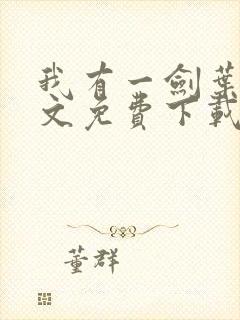 我有一劍葉
文免費下載
董群